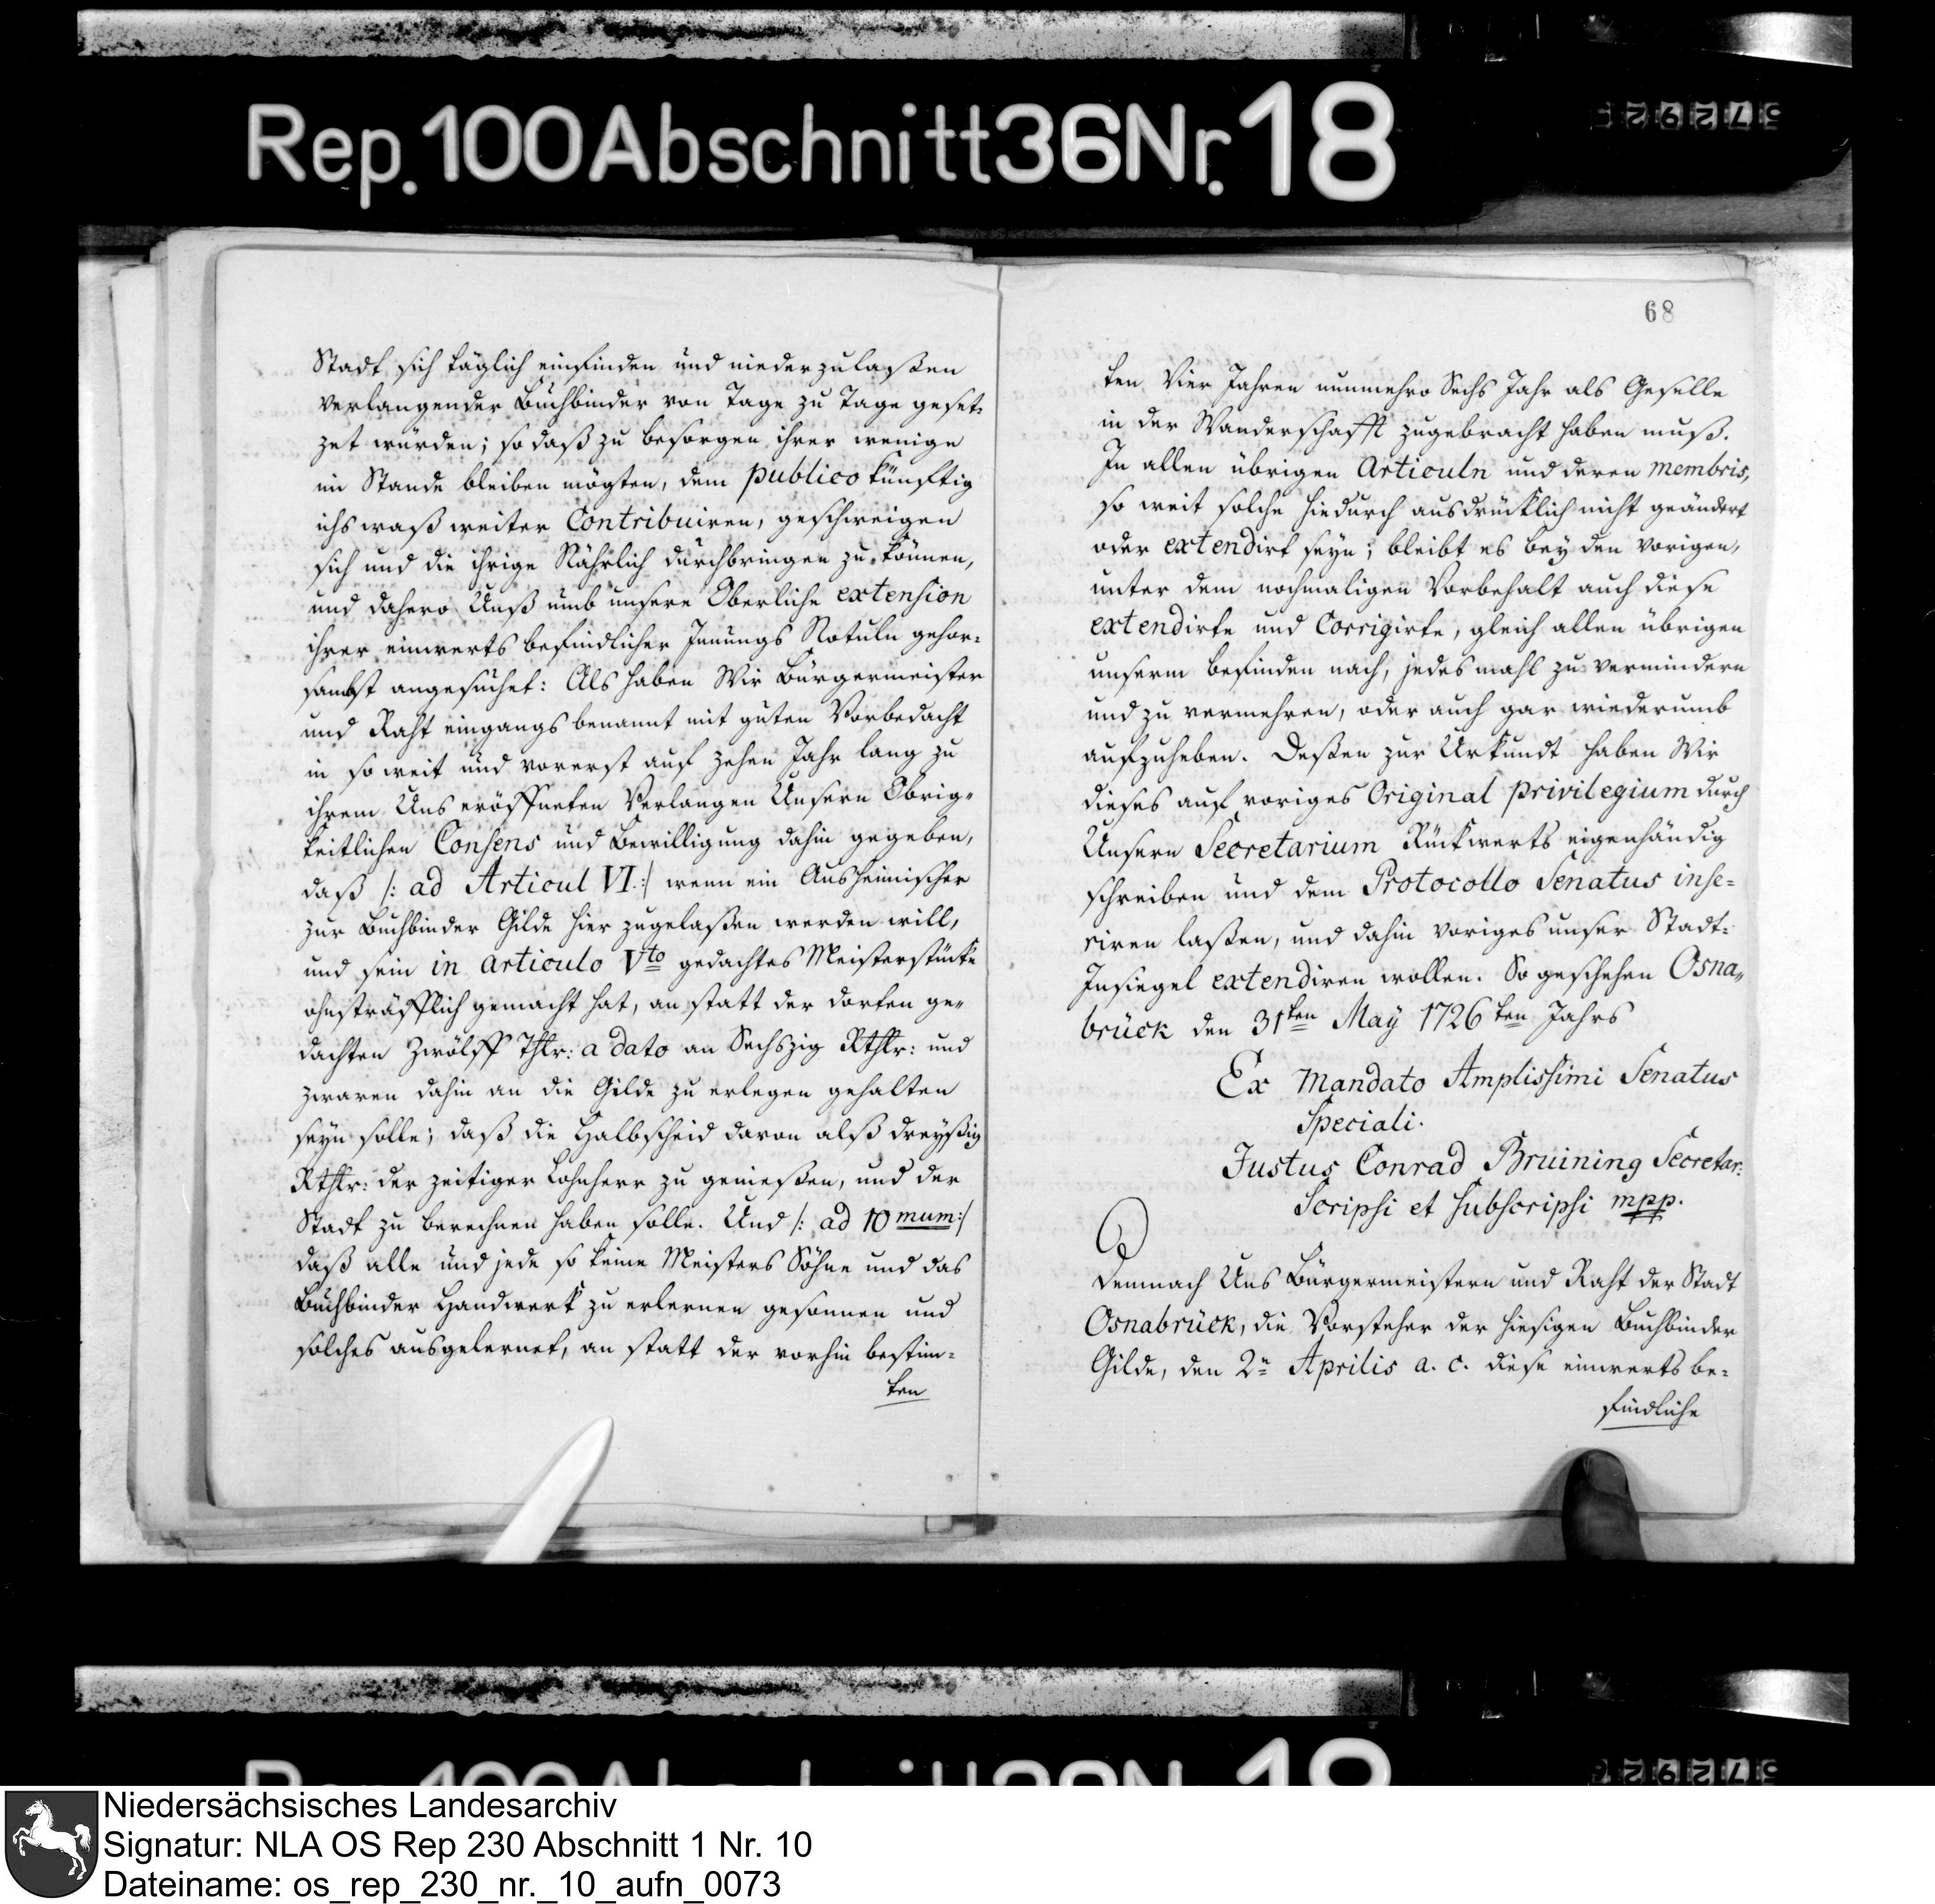 Rep. 100 Abschnitt 36 Nr. 18
Stadt sich täglich einfinden und niederzulaßen
verlangender Buchbinder von Tage zu Tage geset-
zet würden; so daß zu besorgen ihrer wenige
im Stande bleiben mögten, dem publico künftig
ichs waß weiter Contribuiren, geschweigen
sich und die ihrige Nährlich durchbringen zu können,
und dahero Unß umb unsere Oberliche extension
ihrer einwerts befindlicher Innungs Rotuln gehor-
sambst angesuchet: Als haben Wir Bürgermeister
und Raht eingangs benannt mit guten Vorbedacht
in so weit und vorerst auf zehen Jahr lang zu
ihrem Uns eröffneten Verlangen Unsern Obrig-
keitlichen Consens und Bewilligung dahin gegeben,
daß /: ad Articul VI. :/ wenn ein Ausheimischer
zur Buchbinder Gilde hier zugelaßen werden will,
und sein in articulo Vto gedachtes Meisterstücke
ohnsträfflich gemacht hat, an statt der dorten ge-
dachten Zwölff Thlr: a dato an Sechszig Rthlr: und
zwaren dahin an die Gilde zu erlegen gehalten
seyn solle; daß die Halbscheid davon alß dreyßig
Rthlr: der zeitiger Lohnherr zu genießen, und der
Stadt zu berechnen haben solle. Und /: ad 10 mum :/
daß alle und jede so keine Meisters Söhne und das
Buchbinder Handwerk zu erlernen gesonnen und
solches ausgelernet, an statt der vorhin bestim-
ten
68
ten Vier Jahren nunmehro Sechs Jahr als Geselle
in der Wanderschafft zugebracht haben muß.
In allen übrigen Articuln und deren membris,
so weit solche hiedurch ausdrücklich nicht geändert
oder extendirt seyn; bleibt es bey den vorigen,
unter dem nochmaligen Vorbehalt auch diese
extendirte und Corrigirte, gleich allen übrigen
unserm befinden nach, jedesmahl zu vermindern
und zu vermehren, oder auch gar wiederumb
aufzuheben. Deßen zur Urkundt haben Wir
dieses auf voriges Original privilegium durch
Unsern Secretarium Rückwerts eigenhändig
schreiben und dem Protocollo Senatus inse-
riren laßen, und dahin voriges unser Stadt-
Insiegel extendiren wollen. So geschehen Osna-
brück den 31ten May 1726ten Jahrs
Ex Mandato Amplissimi Senatus
Speciali.
Justus Conrad Bruining Secretar:
Scripsi et subscripsi mpp.
Demnach Uns Bürgermeistern und Raht der Stadt
Osnabrück, die Vorsteher der hiesigen Buchbinder
Gilde, den 2n Aprilis a. c. diese einwerts be-
findliche
Niedersächsisches Landesarchiv
Signatur: NLA OS Rep 230 Abschnitt 1 Nr. 10
Dateiname: os_rep_230_nr._10_aufn_0073